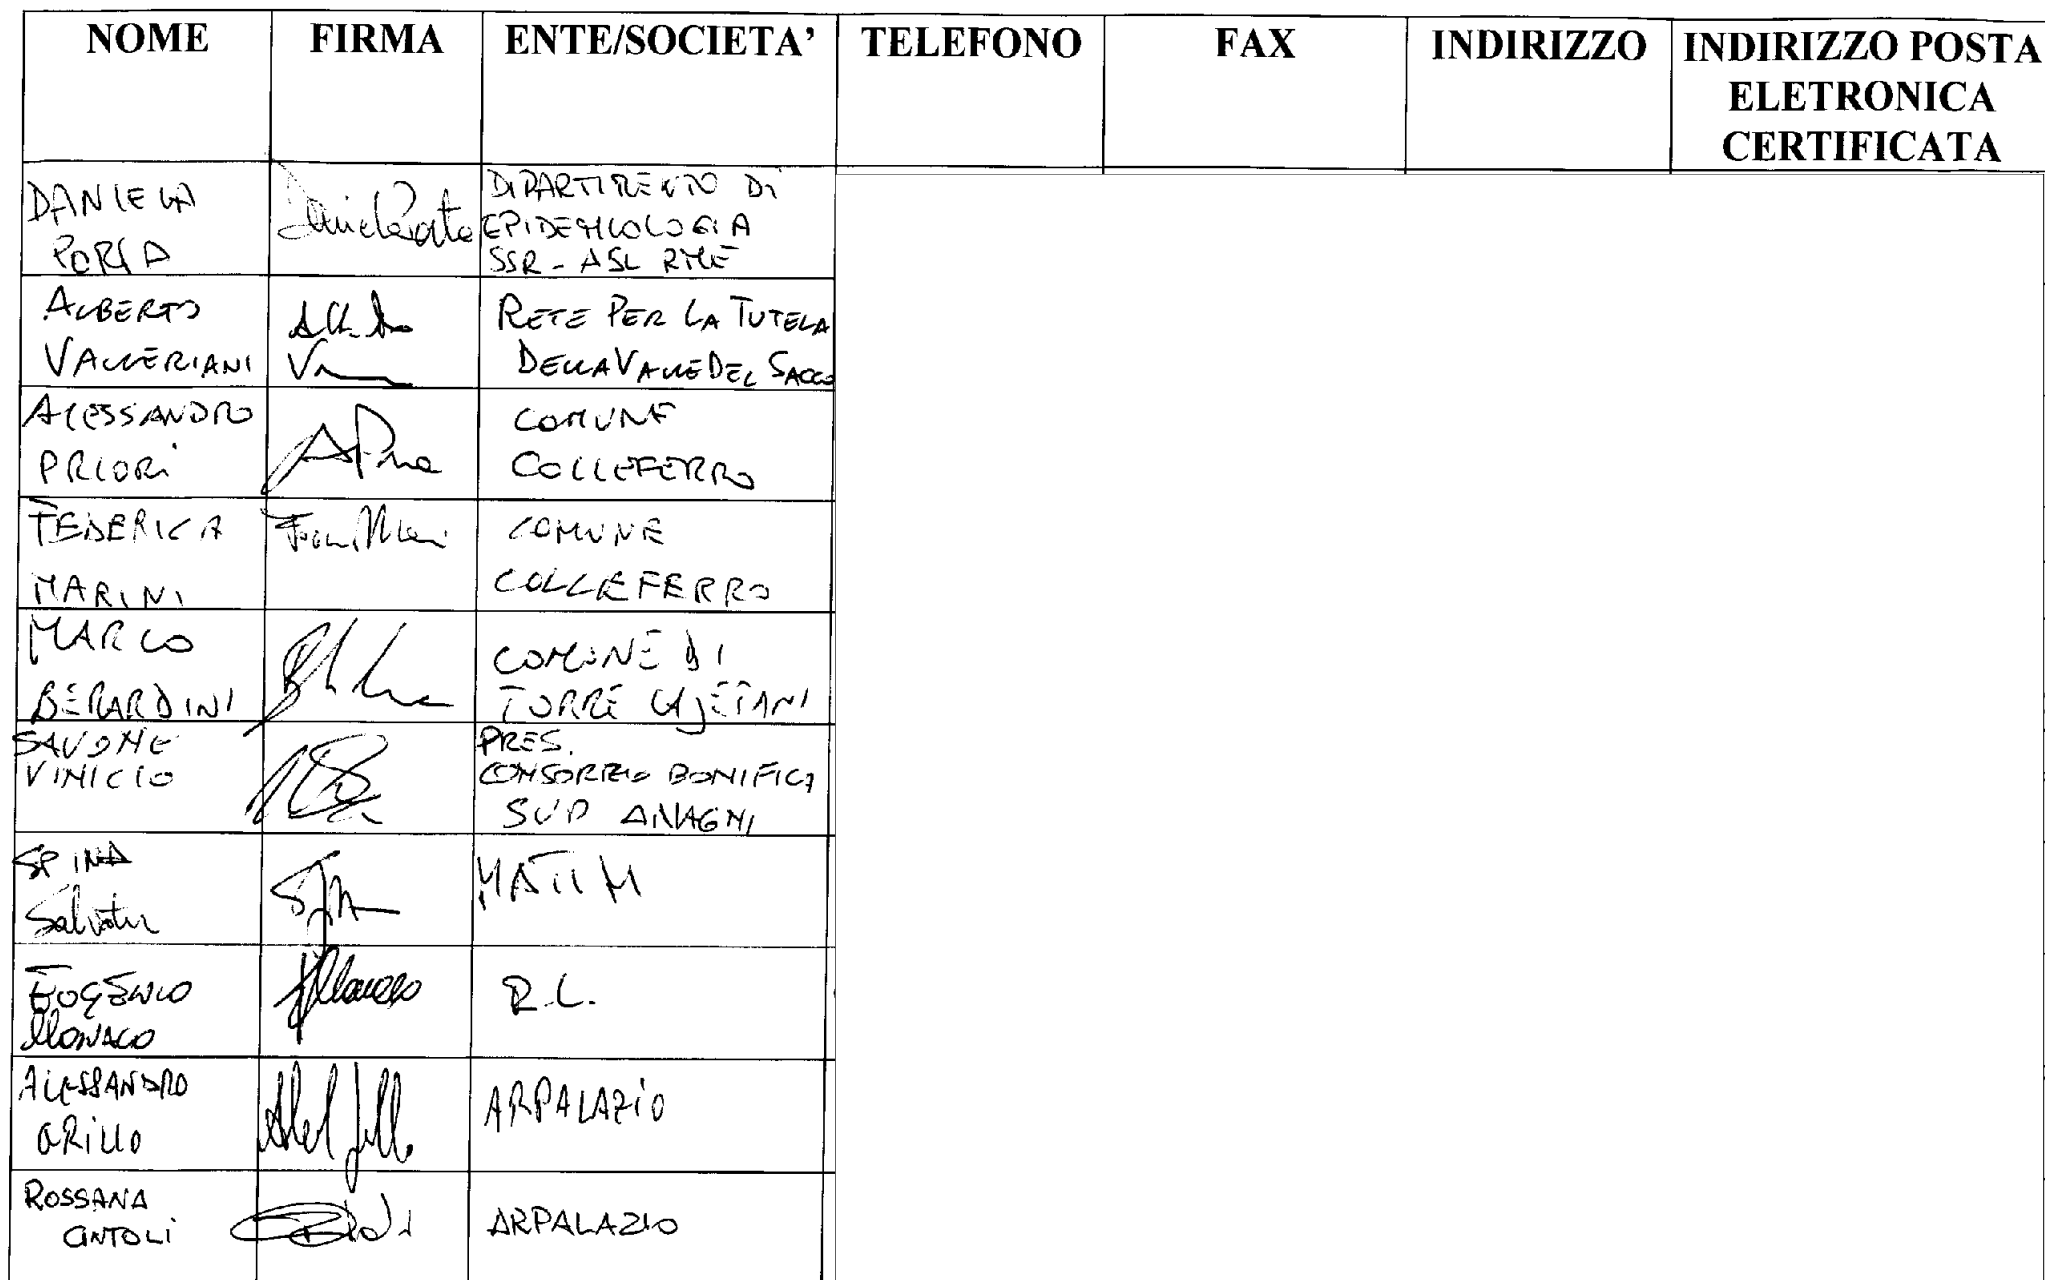 NOME FIRMA ENTE/SOCIETA' TELEFONO FAX INDIRIZZO INDIRIZZO POSTA
ELETRONICA
CERTIFICATA
DANIELA
PORTA
DIPARTIMENTO DI
EPIDEMIOLOGIA
SSR - ASL RME
ALBERTO
VALLERIANI
RETE PER LA TUTELA
DELLA VALLE DEL SACCO
ALESSANDRO
PRIORI
COMUNE
COLLEFERRO
FEDERICA
MARINI
COMUNE
COLLEFERRO
MARCO
BERARDINI
COMUNE DI
TORRE CAJETANI
SAVONE
VINICIO
PRES.
CONSORZIO BONIFICA
SUD ANAGNI
SPINA
Salvatore
MATTM
EUGENIO
MONACO
R.L.
ALESSANDRO
GRILLO
ARPALAZIO
ROSSANA
CINTOLI
ARPALAZIO